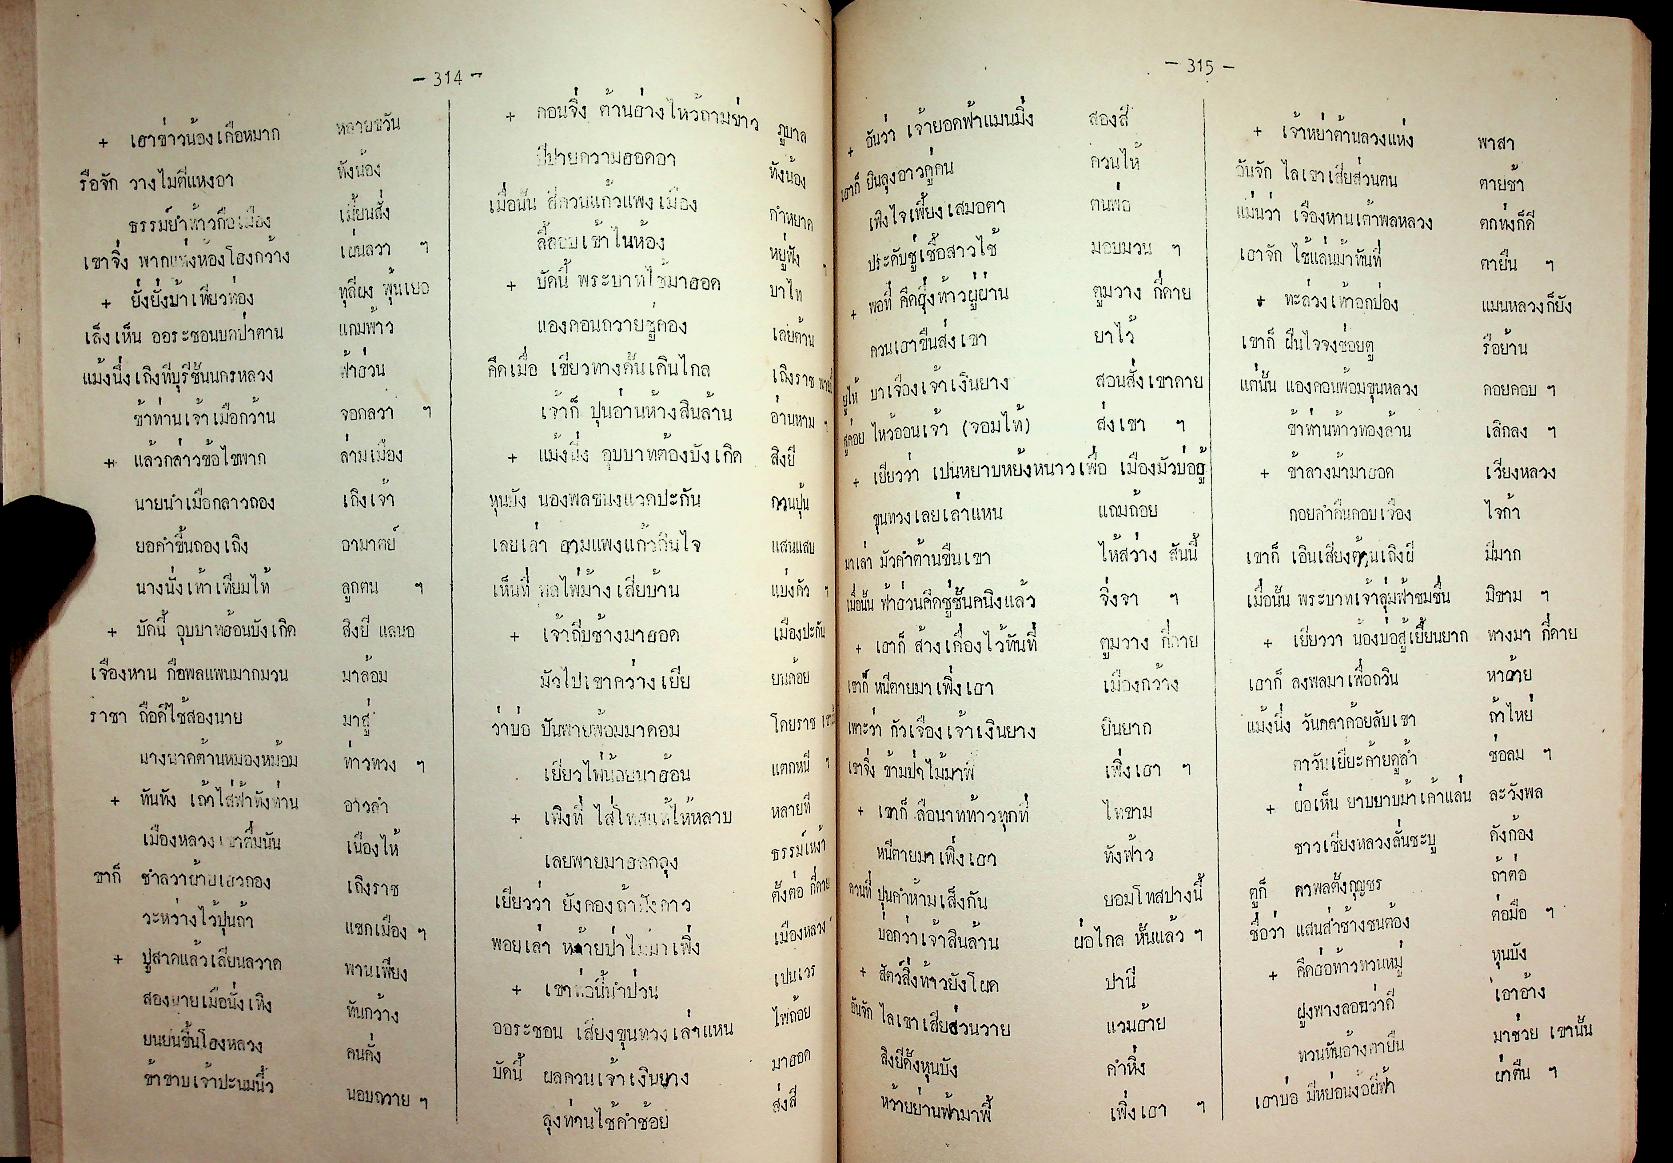 - 314 -
+ เฮาข่าวน้องเกือหมาก หลายขวัน
รือจัก วางไมตีแหงอา ทังน้อง
ธรรม์ยำท้าวกือเมือง เมี้ยนสั่ง
เขาจิ่ง พากแห่งห้องโฮงกว้าง เผ่นลวา ฯ
+ ยั่งยั่งม้าเทียวท่อง ทุลีผง พุ้นเยอ
เล็งเห็น ออระชอนบดป่าตาน แกมพ้าว
แม้งนึ่งเถิงทีบุรีชั้นนครหลวง ฟ้าฮ่วน
ข้าท่านเจ้าเมือกว้าน จอกลวา ฯ
+ แล้วกล่าวข้อไขพาก ล่ามเมือง
นายนำเมือกลาวถอง เถิงเจ้า
ยอคำขึ้นถองเถิง อามาตย์
นางนั่งเท้าเทียมไท้ ลูกตน ฯ
+ บัดนี้ อุบบาทฮ้อนบังเกิด สิงยี แลนอ
เจืองหาน ถือพลแพนมากมวน มาล้อม
ราชา ถือคีไช้สองนาย มาสู่
นางนาดต้านหมองหม้อม ท่าวทวง ฯ
+ ทันทัง เถ้าใส่ฟ้าทังท่าน อาวลำ
เมืองหลวงเขาตื่มนัน เนืองไห้
ขาก็ ซำลวาผ้ายเฮวถอง เถิงราช
ระหว่างไว้ปุนถ้า แขกเมือง ฯ
+ ปูสาดแล้วเลียนลวาด พานเพียง
สองนายเมือนั่งเทิง ทันกว้าง
ยนยนขึ้นโฮงหลวง คนคั่ง
ข้าขาบเจ้าปะนมนิ้ว นอบถวาย ฯ
+ คอนจิ่ง ต้านฮ่างไหว้ถามข่าว ภูบาล
ปีปายความฮอดอา ทังน้อง
เมื่อนั้น สีควนแก้วแพงเมือง กำหยาด
ลี้ลอบเข้าในห้อง หยู่ฟัง ฯ
+ บัดนี้ พระบาทไช้มาฮอด บาไท
แองคอนถวายชู่คอง เลยต้าน
คึดเมื่อ เขียวทางคั้นเดินไกล เถิงราช
เจ้าก็ ปุนอ่านห้างสินล้าน อ่านหาม ฯ
+ แม้งนึ่ง อุบบาทต้องบังเกิด สิงยี
หุนบัง นองพลชนงแวดปะกัน กวนปุ้น
เลยเล่า ฮามแพงแก้วกินใจ แสนแสบ
เห็นที่ พลไพ่ม้างเสียบ้าน แบ่งคัว ฯ
+ เจ้าถีบช้างมาฮอด เมืองปะกัน
มัวไปเขาคว่างเยีย ยนค้อย
ว่าบ่อ ปันพายพ้อมมาดอม โดยราช
เยียวไพ่น้อยนาฮ้อน แตกหนี ฯ
+ เพิงที่ ใส่โทสแท้ไห้หลาบ หลายที
เลยพายมาฮอดลุง ธรรม์เหง้า
เยียวว่า ยังคองถ้าฟังดาว ตั้งต่อ กี่คาย
พอยเล่า หล้ายป่าไม่มาเพิ่ง เมืองหลวง
+ เขาท่อนี้นำป่วน เปนเวร
ออระชอน เสียงขุนทวงเล่าแหน ไพถ้อย
บัดนี้ ผลควนเจ้าเงินยาง มาฮอด
ลุงท่านไช้คำช้อย ส่งสี
- 315 -
+ ฮันว่า เจ้ายอดฟ้าแมนมิ่ง สองสี
เฮาก็ ยินลุงอาวคู่คน ควนไห้
เพิงใจเพี้ยงเสมอตา ตนพ่อ
ประดับชู่เชื้อสาวไช้ มอบมวน ฯ
+ พอที่ คึดยุ่งท้าวผู่ผ่าน ตูมวาง กี่คาย
ควนเฮาขืนส่งเขา ยาไว้
บาเจืองเจ้าเงินยาง สอนสั่งเขาคาย
ไหว้ฮ่อนเจ้า (จอมไท้) ส่งเขา ฯ
+ เยียวว่า เปนหยาบหยังหนาวเพื่อ เมืองมัวบ่อฮู้
ขุนทวงเลยเล่าแหน แถมถ้อย
มัวคำต้านขืนเขา ไห้สว่าง สันนี้
เมื่อนั้น ฟ้าฮ่วนคึดชู่ชั้นคนิงแล้ว จิ่งจา ฯ
+ เฮาก็ ส้างเกื่องไว้ทันที่ ตูมวาง กี่คาย
เขาก็ หนีตายมาเพิ่งเฮา เมืองกว้าง
เพาะว่า กัวเจืองเจ้าเงินยาง ยินยาก
เขาจิ่ง ข้ามป่าไม้มาพี้ เพิ่งเฮา ฯ
+ เขาก็ ลือนาทท้าวทุกที่ ไทขาม
หนีตายมาเพิ่งเฮา ทังฟ้าว
ควนที่ ปุนคำห้ามเส็งกัน ยอมโทสปางนี้
บ่อกว่าเจ้าสินล้าน ผ่อไกล หั้นแล้ว ฯ
+ สัตว์สิ่งท้าวยังโผด ปานี
อันจัก ไลเขาเสียส่วนวาย แวมฮ้าย
สิงยีคั้งหุนบัง คำหิ่ง
หว้ายย่านฟ้ามาพี้ เพิ่งเฮา ฯ
+ เจ้าหย่าต้านลวงแห่ง พาสา
ฮันจัก ไลเขาเสียส่วนตน ตายช้า
แม่นว่า เจืองหานเต้าพลหลวง ตกท่งก็ดี
เฮาจัก ไช้แล่นม้าทันที่ ตายืน ฯ
+ ทะล่วงเท้าฮกป่อง แมนหลวงก็ยัง
เขาก็ ฝืนใจจงช่อยตู รือย้าน
แต่นั้น แองคอนพ้อมขุนหลวง คอยคอบ ฯ
ข้าท่านท้าวทองล้าน เลิกลง ฯ
+ ข้าลางม้ามาฮอด เวียงหลวง
กอยคำคืนคอบเจือง ใจก้า
เขาก็ เอินเสียงต้านเถิงผี มีมาก
เมื่อนั้น พระบาทเจ้าลุ่มฟ้าชมชื่น มิขาม ฯ
+ เยียวว่า น้องบ่อสู้เยี้ยนยาก ทางมา กี่คาย
เฮาก็ ลงพลมาเพื่อถวิน หาฮ้าย
แม้งนึ่ง วันคลาค้อยลับเขา ถ้าไหย่
ตาวันเยี่ยะค้ายคูลำ้ ช่อลม ฯ
+ ผ่อเห็น ยาบยาบม้าเค้าแล่น ละวังพล
ชาวเชียงหลวงลั่นชะบู กังก้อง
ตูก็ ดาพลตั้งกุญชร ถ้าต่อ
ชื่อว่า แสนส่ำช้างชนต้อง ต่อมือ ฯ
+ คึดฮ่อท้าวทวนหมู่ หุนบัง
ฝูงพางลอนว่าดี เอาอ้าง
ทวนทันอ้างตายืน มาช่วย เขานั้น
เฮาบ่อ มีหย่อนงอีผีฟ้า ผ่าดืน ฯ